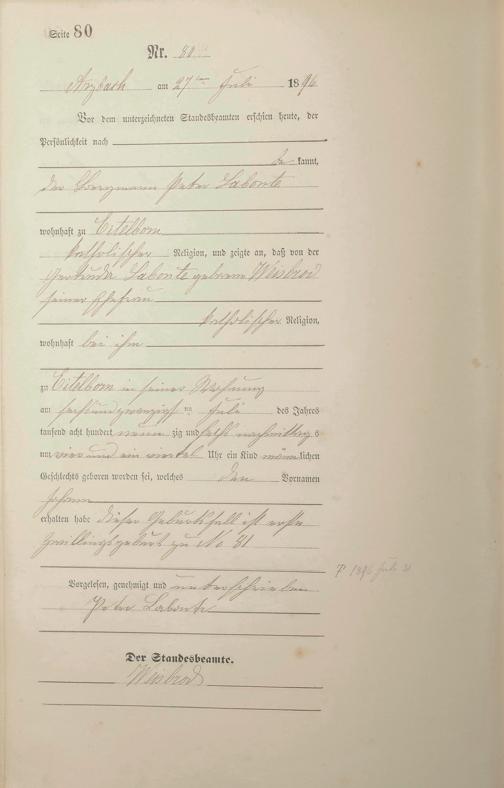 Seite 80
Nr. 80
Arzbach am 27ten Juli 1896
Vor dem unterzeichneten Standesbeamten erschien heute, der
Persönlichkeit nach
be kannt,
der Bergmann Peter Labonte
wohnhaft zu Eitelborn
katholischer Religion, und zeigte an, daß von der
Gertrude Labonte geborene Weisbrod
seiner Ehefrau
katholischer Religion,
wohnhaft bei ihm
zu Eitelborn in seiner Wohnung
am sechsundzwanzigsten Juli des Jahres
tausend acht hundert neun zig und sechs nachmittag s
um vier und ein viertel Uhr ein Kind männlichen
Geschlechts geboren worden sei, welches den Vornamen
Johann
erhalten habe dieser Geburtsfall ist erste
Zwillingsgeburt zu No 81
Vorgelesen, genehmigt und unterschrieben
Peter Labonte
Der Standesbeamte.
Weisbrod
1896 Juli